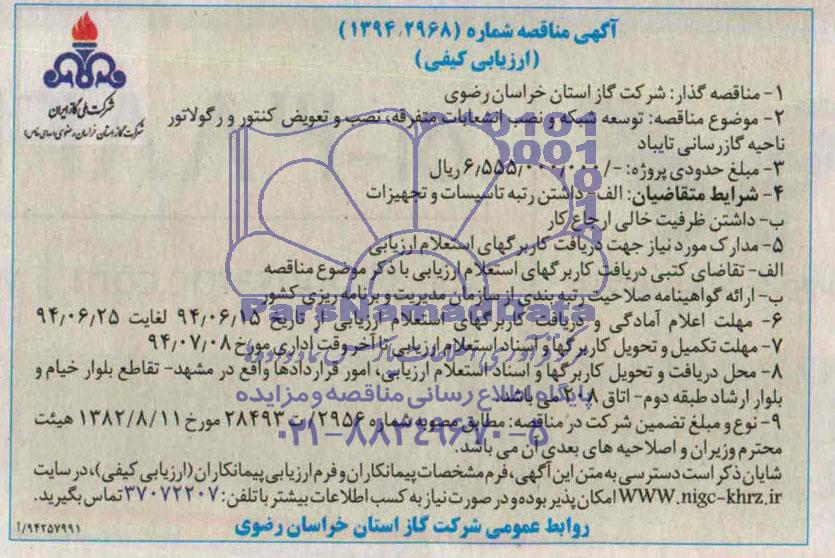 آگهی مناقصه شماره (۱۳۹۴،۲۹۶۸)
(ارزیابی کیفی)
شرکت ملی گاز ایران
شرکت گاز استان خراسان رضوی (سهامی خاص)
۱- مناقصه گذار: شرکت گاز استان خراسان رضوی
۲- موضوع مناقصه: توسعه شبکه و نصب انشعابات متفرقه، نصب و تعویض کنتور و رگولاتور
ناحیه گازرسانی تایباد
۳- مبلغ حدودی پروژه: -/۶,۵۵۵,۰۰۰,۰۰۰ ریال
۴- شرایط متقاضیان: الف- داشتن رتبه تاسیسات و تجهیزات
ب- داشتن ظرفیت خالی ارجاع کار
۵- مدارک مورد نیاز جهت دریافت کاربرگهای استعلام ارزیابی
الف- تقاضای کتبی دریافت کاربرگهای استعلام ارزیابی با ذکر موضوع مناقصه
ب- ارائه گواهینامه صلاحیت رتبه بندی از سازمان مدیریت و برنامه ریزی کشور
۶- مهلت اعلام آمادگی و دریافت کاربرگهای استعلام ارزیابی از تاریخ ۹۴،۰۶،۱۵ لغایت ۹۴،۰۶،۲۵
۷- مهلت تکمیل و تحویل کاربرگها و اسناد استعلام ارزیابی تا آخر وقت اداری مورخ ۹۴،۰۷،۰۸
۸- محل دریافت و تحویل کاربرگها و اسناد استعلام ارزیابی، امور قراردادها واقع در مشهد- تقاطع بلوار خیام و
بلوار ارشاد طبقه دوم- اتاق ۲۰۸ می باشد.
۹- نوع و مبلغ تضمین شرکت در مناقصه: مطابق مصوبه شماره ۲۹۵۶/ت ۲۸۴۹۳ مورخ ۱۳۸۲/۸/۱۱ هیئت
محترم وزیران و اصلاحیه های بعدی آن می باشد.
شایان ذکر است دسترسی به متن این آگهی، فرم مشخصات پیمانکاران و فرم ارزیابی پیمانکاران (ارزیابی کیفی)، در سایت
WWW.nigc-khrz.ir امکان پذیر بوده و در صورت نیاز به کسب اطلاعات بیشتر با تلفن: ۳۷۰۷۲۲۰۷ تماس بگیرید.
روابط عمومی شرکت گاز استان خراسان رضوی
۹۴۲۵۷۹۹۱/آ
ParsNamadData
پایگاه اطلاع رسانی مناقصه و مزایده
۰۲۱-۸۸۳۴۹۶۷۰-۵